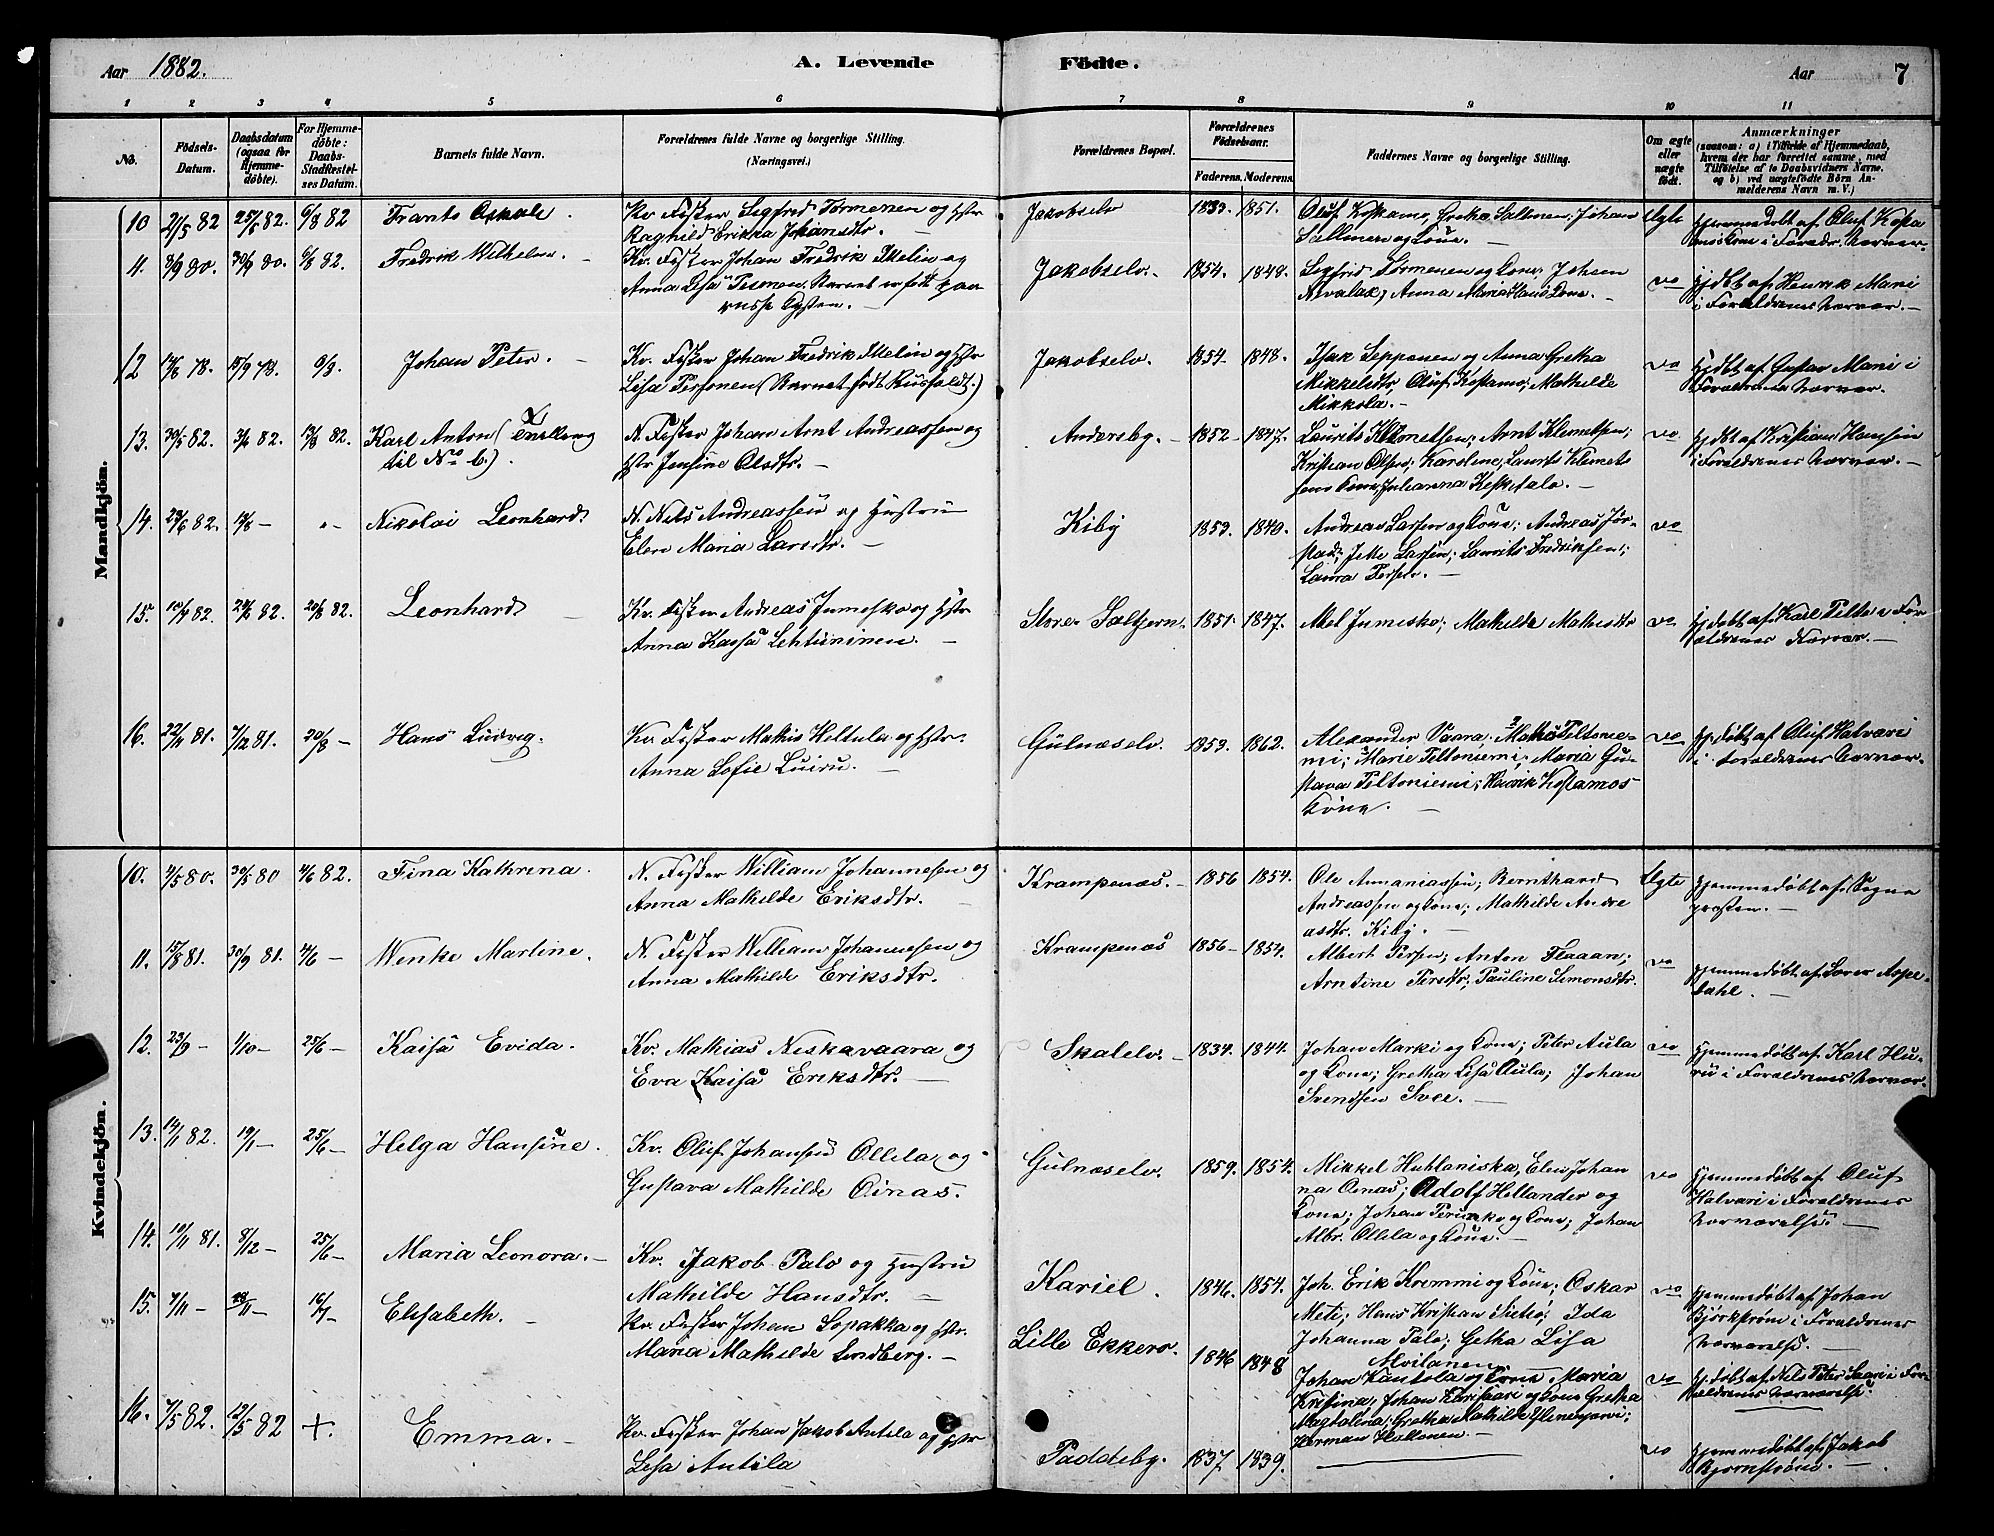 Aar 1882. A. Levende Födte. Aar 7
1 2 3 4 5 6 7 8 9 10 11
No. Födsels-Datum. Daabsdatum (ogsaa for Hjemme-döbte). For Hjemme-döbte: Daabs-Stadfæstel-ses Datum. Barnets fulde Navn. Forældrenes fulde Navne og borgerlige Stilling. (Næringsvei.) Forældrenes Bopæl. Forældrenes Födselsaar. Faderens. Moderens. Faddernes Navne og borgerlige Stilling. Om ægte eller uægte födt. Anmærkninger (saasom: a) i Tilfælde af Hjemmedaab, hvem der har forrettet samme, med Tilföielse af to Daabsvidners Navne, og b) ved uægtefödte Börn An-melderens Navn m. V.)
Mandkjön.
10 2/5 82 25/5 82. 6/8 82 Frants Oskale. Kv. Fisker Segfred Tormenen og Hstr
Raghild Erikka Johansdtr. Jakobselv 1833. 1851. Oluf Kostamo, Gretha Sallmen, Johan
Sallmen og Kone. Ægte Hjemmedöbt af Oluf
i Foræld. Nærvær.
4. 8/9 80. 30/9 80. 6/8 82. Fredrik Wilhelm. Kv. Fisker Johan Fredrik Melin og
Anna Lisa Personen. Barnet er født paa
russe Kysten. Jakobselv. 1854. 1848. Segfrid Tormenen og Kone, Johan
Alvalax; Anna Maria Hans Kone. Hjdöbt af Henrik Mani
i Forældrenes Nærvær.
12 14/8 78. 15/9 78. 6/8. Johan Peter. Kv. Fisker Johan Fredrik Melin og Hstr
Lisa Personen (Barnet født Rusfeldt.) Jakobselv. 1854. 1848. Isak Sepponen og Anna Gretha
Mikkelsdtr, Oluf Kostamo, Mathilde
Mikkola. Hjdöbt af Gustav Mani i
Forældrenes Nærvær.
13. 30/5 82. 3/6 82. 13/8 82. Karl Anton (Tvilling
til No 6.). N. Fisker Johan Arnt Andreassen og
Hstr Jensine Olsdtr. Andersby. 1852 1847. Laurits Klemetsen; Arnt Klemetsen;
Kristian Olsen; Karoline, Laurits Klemet
sens Kone, Julianna Keskitalo. Hjdöbt af Kristians Hansen
i Forældrenes Nærvær.
14. 23/6 82. 13/8 Nikolai Leonhard. N. Nils Andreassen og Hustru
Elen Maria Larsdtr. Kiby 1853. 1840. Andreas Larsen og Kone; Andreas Jør-
stad; Jette Larsen; Laurits Fredriksen;
Laura Persdr.
15. 10/4 82. 24/6 82. 20/8 82. Leonhard Kv. Fisker Andreas Jumisko og Hstr
Anna Kaisa Lehtuninen. Store Salthjern. 1851. 1847. Abel Jumisko; Mathilde Mathisdtr Hjdöbt af Karl Pelto i For
ældrenes Nærvær.
16. 22/11 81. 7/12 81. 20/8 Hans Ludvig. Kv. Fisker Mathis Heltula og Hstr.
Anna Sofie Luiru. Gulnæselv. 1853. 1862. Alexander Vaara, Mathis Peltonie-
mi; Marie Peltoniemi; Maria Gu-
stava Peltoniemi; Henrik Kostamos
Kone. Hjdöbt af Oluf Halvari
i Forældrenes Nærvær.
Kvindekjön.
10. 4/5 80. 30/5 80 4/6 82. Fina Kathrina. N. Fisker William Johannesen og
Anna Mathilde Eriksdtr. Krampenæs. 1856 1854. Ole Annaniassen; Bernthard
Andreassen og Kone; Mathilde Andre
asdtr. Kiby. Ægte Hjemmedöbt af Sogne
præsten.
11. 15/8 81. 30/9 81. 4/6 Wenke Martine. N. Fisker William Johannesen og
Anna Mathilde Eriksdtr. Krampenæs 1856 1854. Albert Persen; Anton Flaaan;
Arntine Persdtr, Pauline Simonsdtr. Hjemmedöbt af Sører Aspe-
dahl.
12. 23/9 1/10 25/6 Kaisa Evida. Kv. Mathias Neskavaara og
Eva Kaisa Eriksdtr. Skalelv. 1834. 1844. Johan Marki og Kone; Peter Aula
og Kone; Gretha Lisa Aula; Johan
Svendsen Svee. Hjemmedöbt af Karl Hu-
ru i Forældrenes Nærvær.
13. 14/1 82. 19/1 25/6 Helga Hansine. Kv. Oluf Johansen Ollila og
Gustava Mathilde Oinas. Gulnæselv. 1859. 1854. Mikkel Huhtaniska, Elen Johan
na Oinas; Adolf Hellander og
Kone; Johan Perunka og Kone; Johan
Albr. Ollila og Kone. Hjemmedöbt af Oluf
Halvari i Forældrenes
Nærværelse.
14. 19/11 81. 8/12 25/6 Maria Leonora. Kv. Jakob Palo og Hustru
Mathilde Hansdtr. Kariel. 1846. 1854. Joh. Erik Kremmi og Kone; Oskar
Meti; Hans Kristian Sieko; Ida
Johanna Palo; Getha Lisa
Alvilanen Hjemmedöbt af Johan
Björkström i Forældrenes
Nærværelse.
15. 7/11 28/11 16/7 Elisabeth. Kv. Fisker Johan Sopakka og Hstr.
Maria Mathilde Lindberg. Lille Ekkerø. 1846 1848 Johan Kantola og Kone Maria
Kristina; Johan og Kone Gretha
Magtalina; Gretha Mathilde Ylinenjarvi;
Herman Hallonen. Hjdöbt af Nils Peter Saari i For
ældrenes Nærværelse.
16. 7/5 82. 12/5 82 +. Emma. Kv. Fisker Johan Jakob Antila og Hstr
Lisa Antila Paddeby. 1837. 1839. Hjemmedöbt af Jakob
Bjørnstrøm.